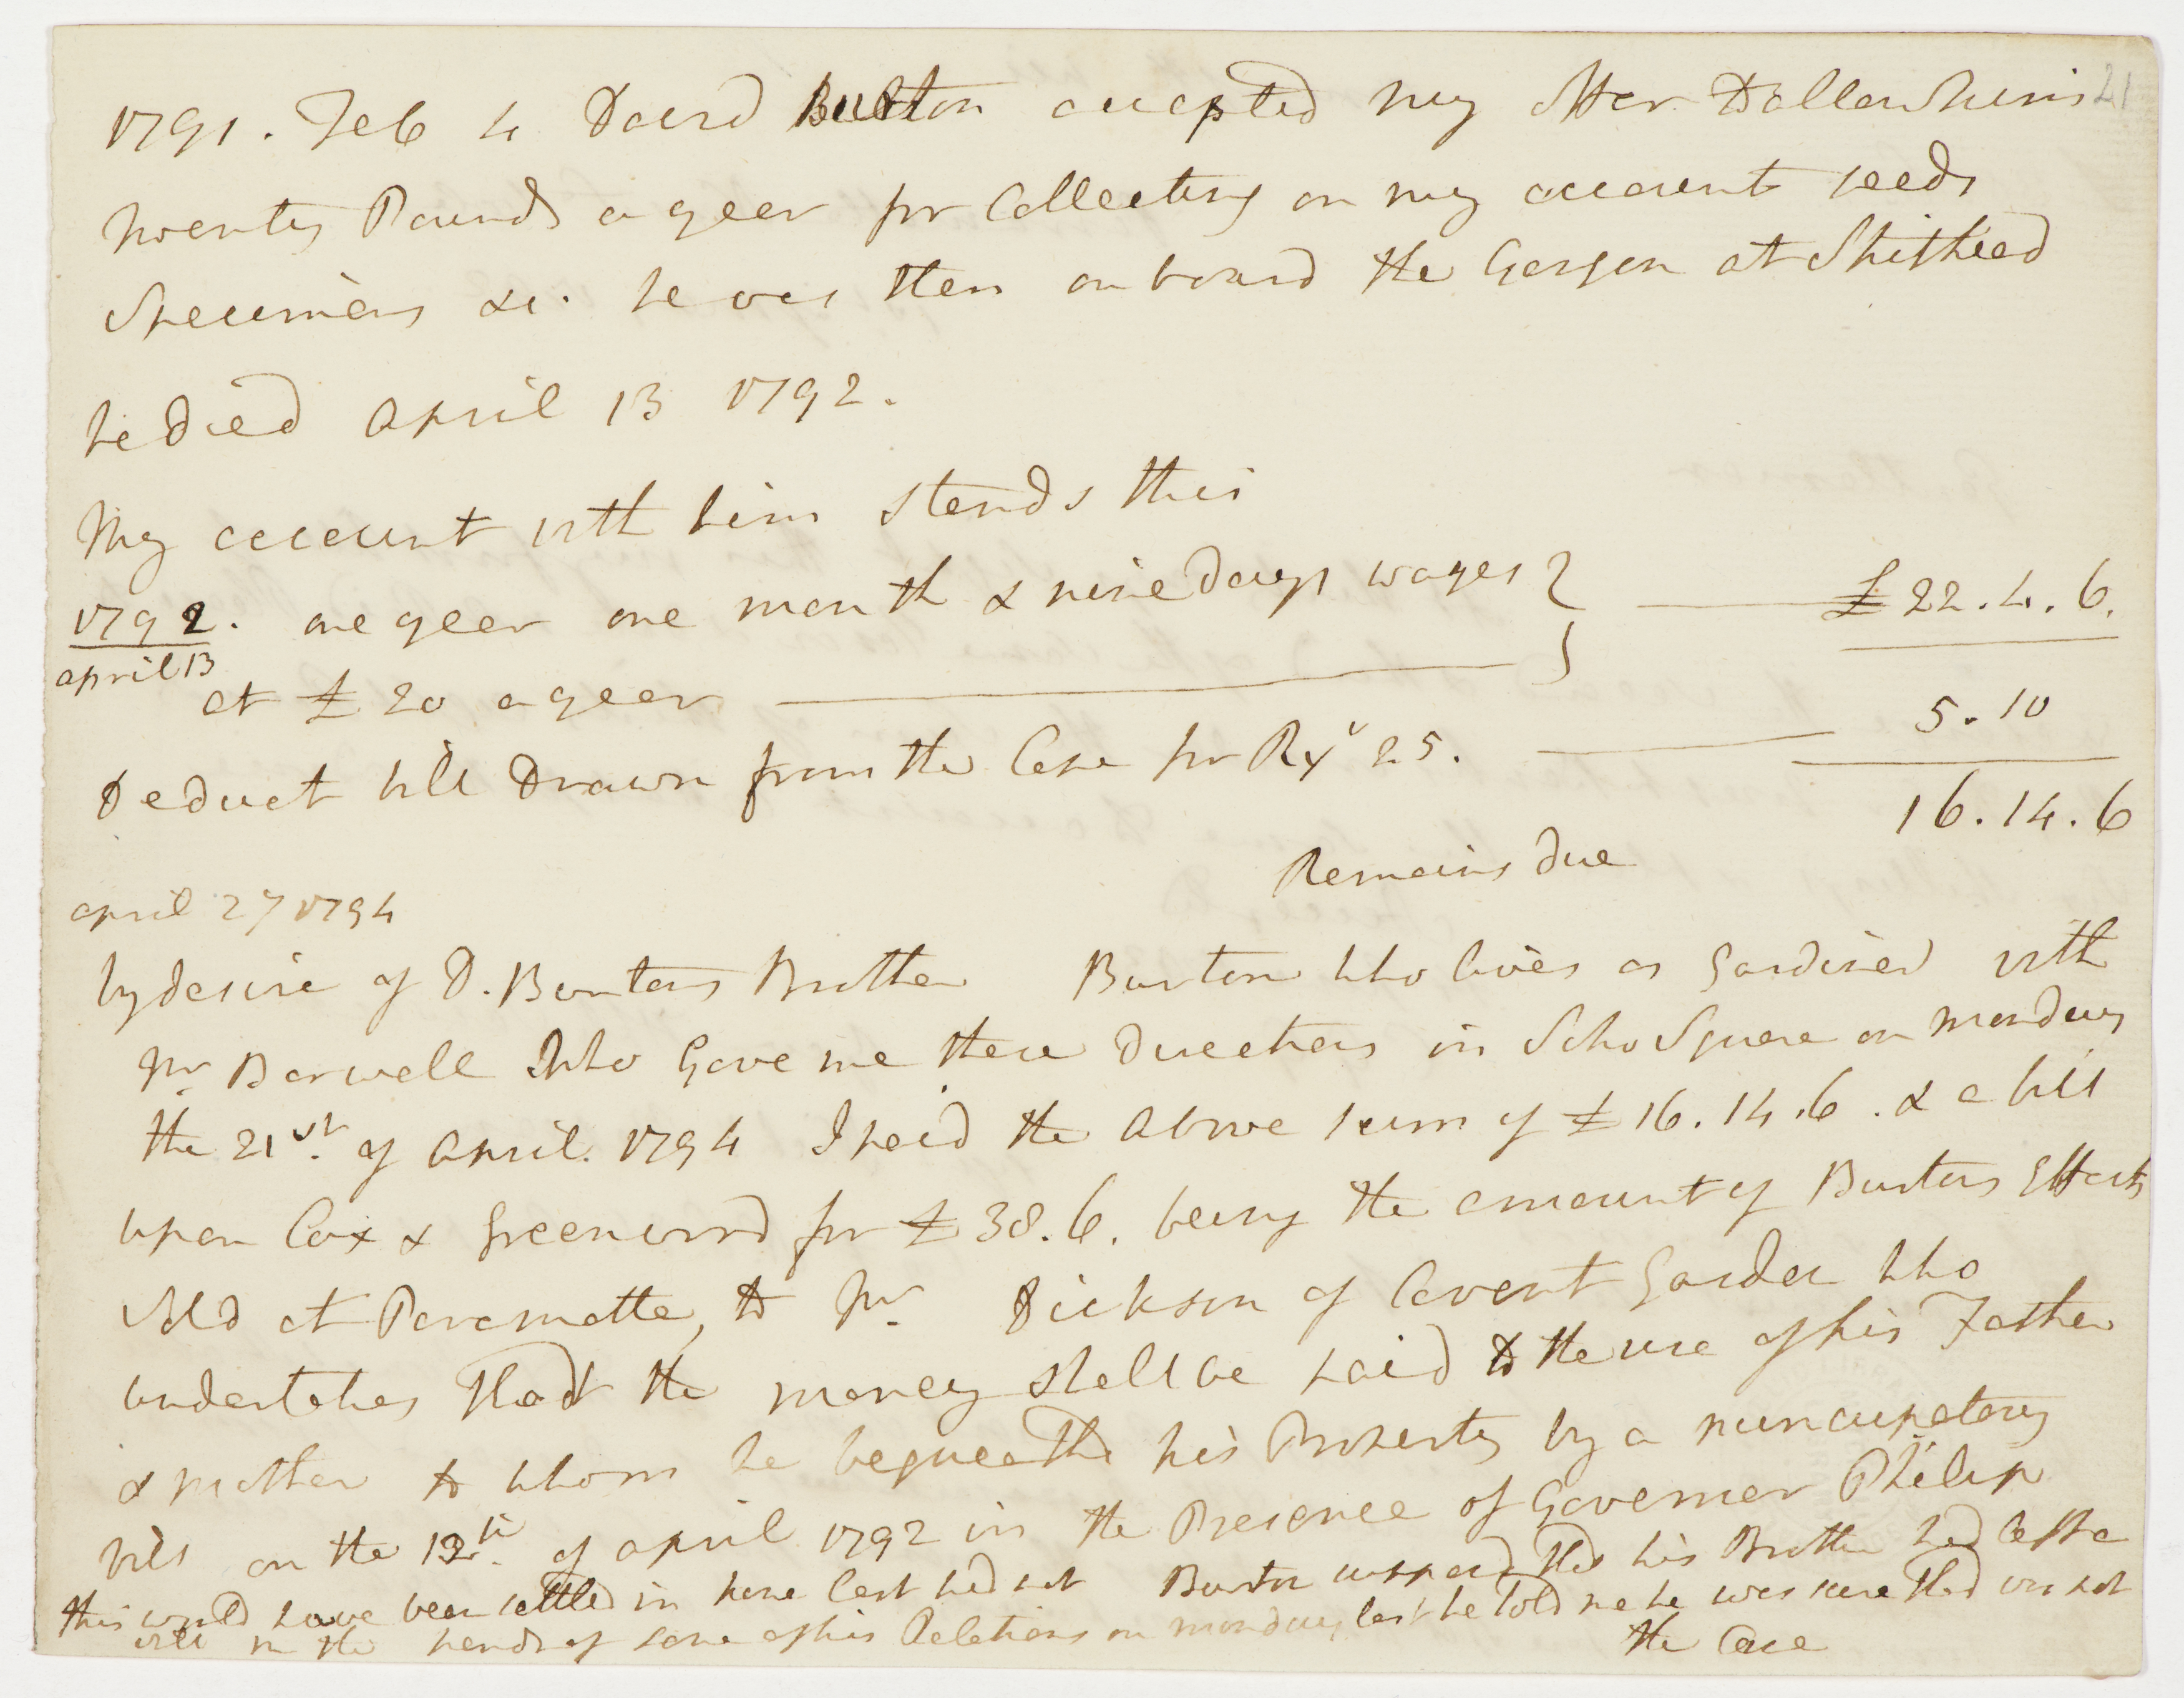 21
1791. Feb 4 David Burton accepted my offer
twenty Pounds a year for Collecting on my account seeds
Specimens &c. he was then on board the Gorgon at Spithead
he died April 13 1792.
My account with him stands thus
1792. one year one month & nine days wages } £22.4.6.
april 13
at £20 a year
5.10
Deduct bill Drawn from the Cape for Rx^s 25.
16.14.6
Remains due
april 27 1794
by desire of D. Burtons Brother Burton who lives as Gardiner with
Mr. Barwell who Gave me these directions in Soho Square on monday
the 21st. of april. 1794 I paid the above sum of £16.14.6. & a bill
upon Cox & Greenwood for £38.6. being the amount of Burtons Effects
sold at Paramatta, to Mr. Dickson of Covent Garden who
undertakes that the money shall be paid to the use of his Father
& mother to whom he bequeathd his Property by a nuncupatory
will on the 12th. of april 1792 in the Presence of Governor Philip
this would have been settled in June last had not Burton supposd that his Brother had left a
will in the hands of some of his Relations on monday last he told me he was sure that was not
the Case